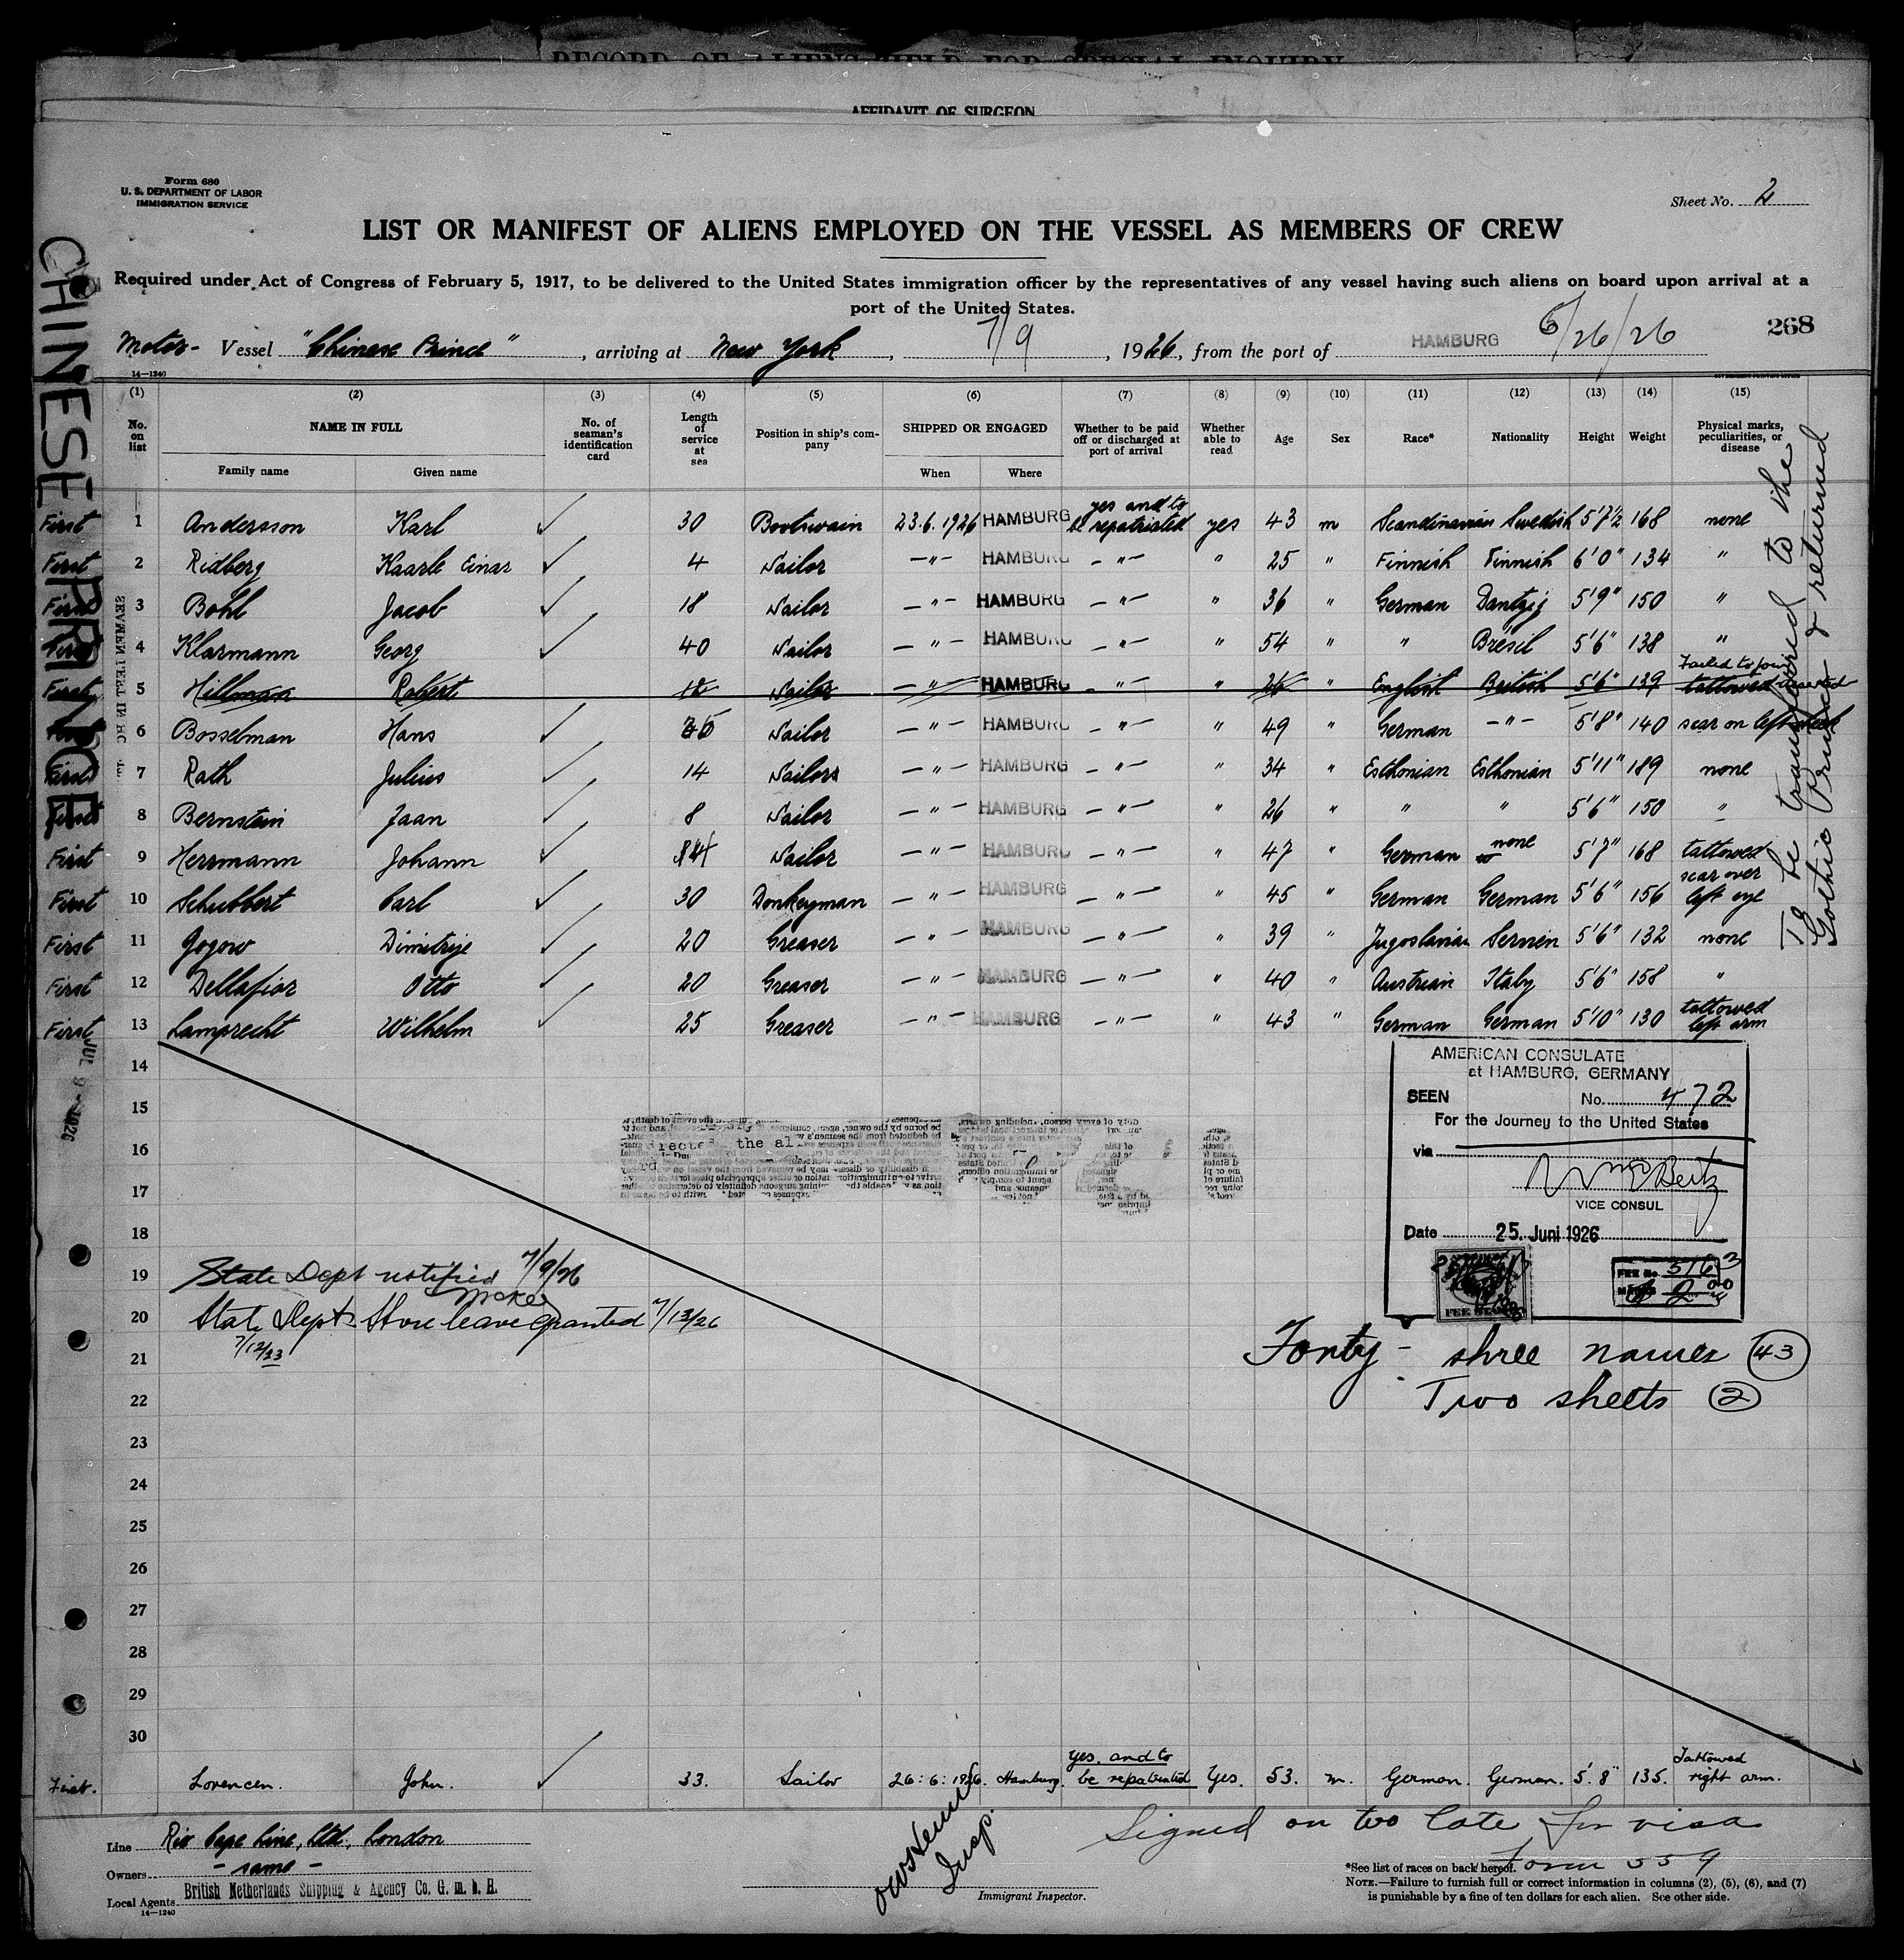 RECORD OF ALIENS HELD FOR SPECIAL INQUIRY
AFFIDAVIT OF SURGEON
Form 680
U. S. DEPARTMENT OF LABOR
IMMIGRATION SERVICE
Sheet No. 2
LIST OR MANIFEST OF ALIENS EMPLOYED ON THE VESSEL AS MEMBERS OF CREW
Required under Act of Congress of February 5, 1917, to be delivered to the United States immigration officer by the representatives of any vessel having such aliens on board upon arrival at a
port of the United States.
268
Motor- Vessel "Chinese Prince", arriving at New York, 7/9, 1926, from the port of HAMBURG 6/26/26
14—1240
CHINESE PRINCE
(1) (2) (3) (4) (5) (6) (7) (8) (9) (10) (11) (12) (13) (14) (15)
No. on list NAME IN FULL Family name Given name No. of seaman's identification card Length of service at sea Position in ship's company SHIPPED OR ENGAGED When Where Whether to be paid off or discharged at port of arrival Whether able to read Age Sex Race* Nationality Height Weight Physical marks, peculiarities, or disease
First 1 Andersson Karl ✓ 30 Bootswain 23.6.1926 HAMBURG yes and to be repatriated yes 43 m Scandinavian Swedish 5'7½ 168 none
First 2 Ridberg Kaarle Einar ✓ 4 Sailor —"— HAMBURG —"— " 25 " Finnish Finnish 6'0" 134 "
First 3 Bohl Jacob ✓ 18 Sailor —"— HAMBURG —"— " 36 " German Dantzig 5'9" 150 "
First 4 Klarmann Georg ✓ 40 Sailor —"— HAMBURG —"— " 54 " " Bresil 5'6" 138 "
First 5 Hillman Robert Sailor —"— HAMBURG —"— " 26 " English British 5'6" 139 tattowed Failed to join
6 Bosselman Hans ✓ Sailor —"— HAMBURG —"— " 49 " German —"— 5'8" 140 scar on left cheek
First 7 Rath Julius ✓ 14 Sailor —"— HAMBURG —"— " 34 " Esthonian Esthonian 5'11" 189 none
First 8 Bernstein Jaan ✓ 8 Sailor —"— HAMBURG —"— " 26 " " " 5'6" 150 "
First 9 Herrmann Johann ✓ Sailor —"— HAMBURG —"— " 47 " German none 5'7" 168 tattowed
First 10 Schubbert Carl ✓ 30 Donkeyman —"— HAMBURG —"— " 45 " German German 5'6" 156 scar over left eye
First 11 Gogow Dimitrije ✓ 20 Greaser —"— HAMBURG —"— " 39 " Jugoslavian 5'6" 132 none
First 12 Dellafior Otto ✓ 20 Greaser —"— HAMBURG —"— " 40 " Austrian Italy 5'6" 158 "
First 13 Lamprecht Wilhelm ✓ 25 Greaser —"— HAMBURG —"— " 43 " German German 5'10" 130 tattowed left arm
To be transferred to the
Gothic Prince & returned
JUL 9 - 1926
14
15
16
17
18
19
20
21
22
23
24
25
26
27
28
29
30
AMERICAN CONSULATE
at HAMBURG, GERMANY
SEEN No. 472
For the Journey to the United States
via
VICE CONSUL
Date 25. Juni 1926
FEE No. 5163
State Dept notified 7/9/26
State Dept. Shore leave granted 7/13/26
Forty-three names (43)
Two sheets (2)
First. Lorencen. John. ✓ 33. Sailor 26:6:1926. Hamburg. Yes. and to be repatriated Yes. 53. m. German. German. 5'.8" 135. Tattowed right arm.
Signed on too late for visa
Form 559
Line Rio Cape Line, Ltd., London
Owners - same -
Local Agents British Netherlands Shipping & Agency Co. G. m. b. H.
14—1240
Insp.
Immigrant Inspector.
*See list of races on back hereof.
NOTE.—Failure to furnish full or correct information in columns (2), (5), (6), and (7)
is punishable by a fine of ten dollars for each alien. See other side.